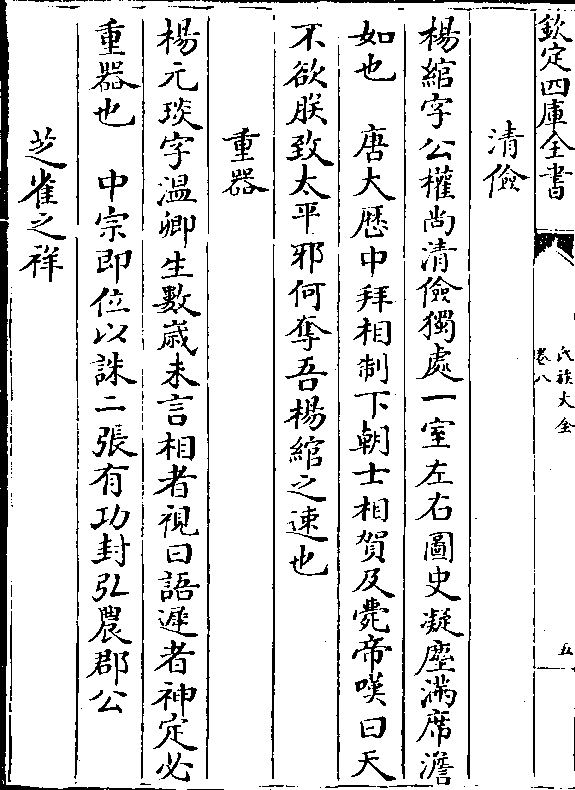 欽定四庫全書
氏族大全
卷八
五
清儉
楊綰字公權尚清儉獨處一室左右圖史凝塵滿席澹
如也　唐大歴中拜相制下朝士相賀及薨帝嘆曰天
不欲朕致太平邪何奪吾楊綰之速也
重器
楊元琰字溫卿生數歲未言相者視曰語遲者神定必
重器也　中宗即位以誅二張有功封弘農郡公
芝雀之祥